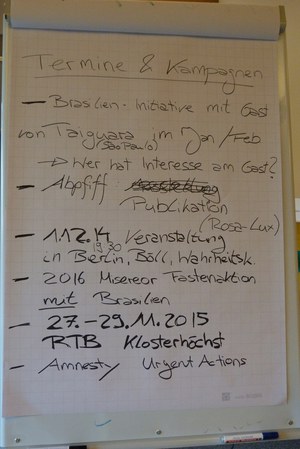 Termine & Kampagnen
— Brasilien-Initiative mit Gast
von Taiguara im Jan/Feb
(São Paulo)
→ Wer hat Interesse am Gast?
— Abpfiff
Publikation
(Rosa-Lux)
— 1.12.14 Veranstaltung
19:30
in Berlin, Böll, Wahrheitsk.
— 2016 Misereor Fastenaktion
mit Brasilien
— 27.-29.11.2015
RTB Klosterhöchst
— Amnesty Urgent Actions